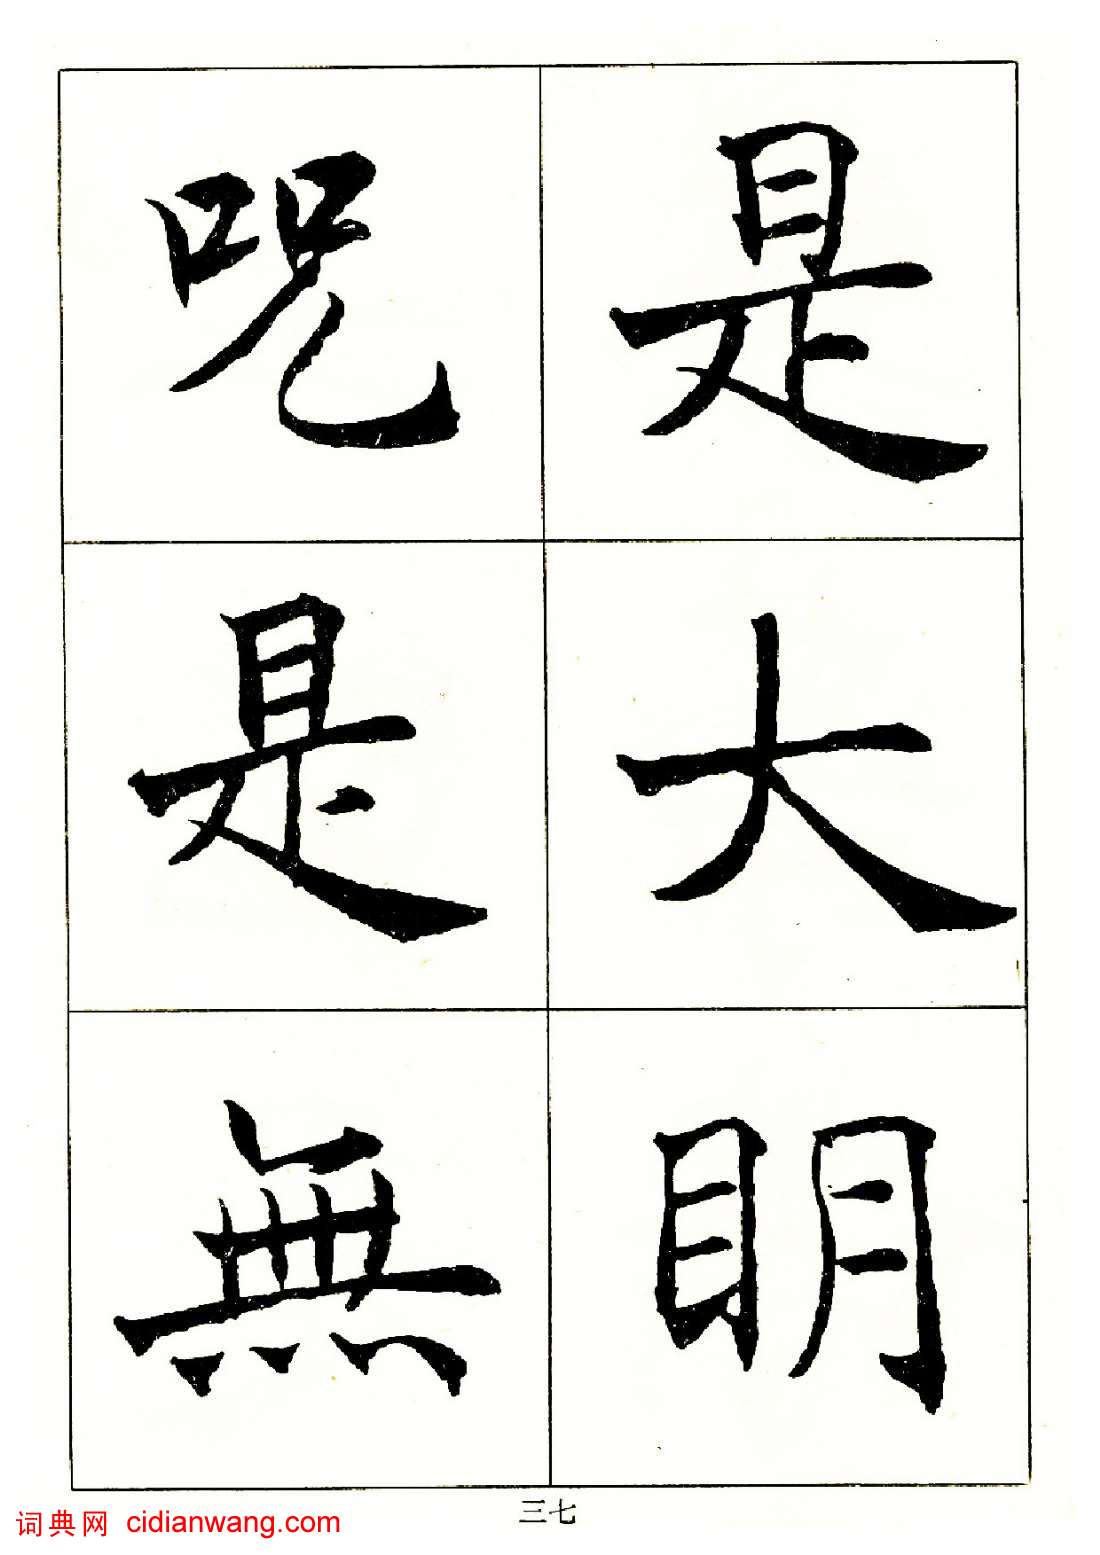 是大明
咒是無
三七
词典网 cidianwang.com